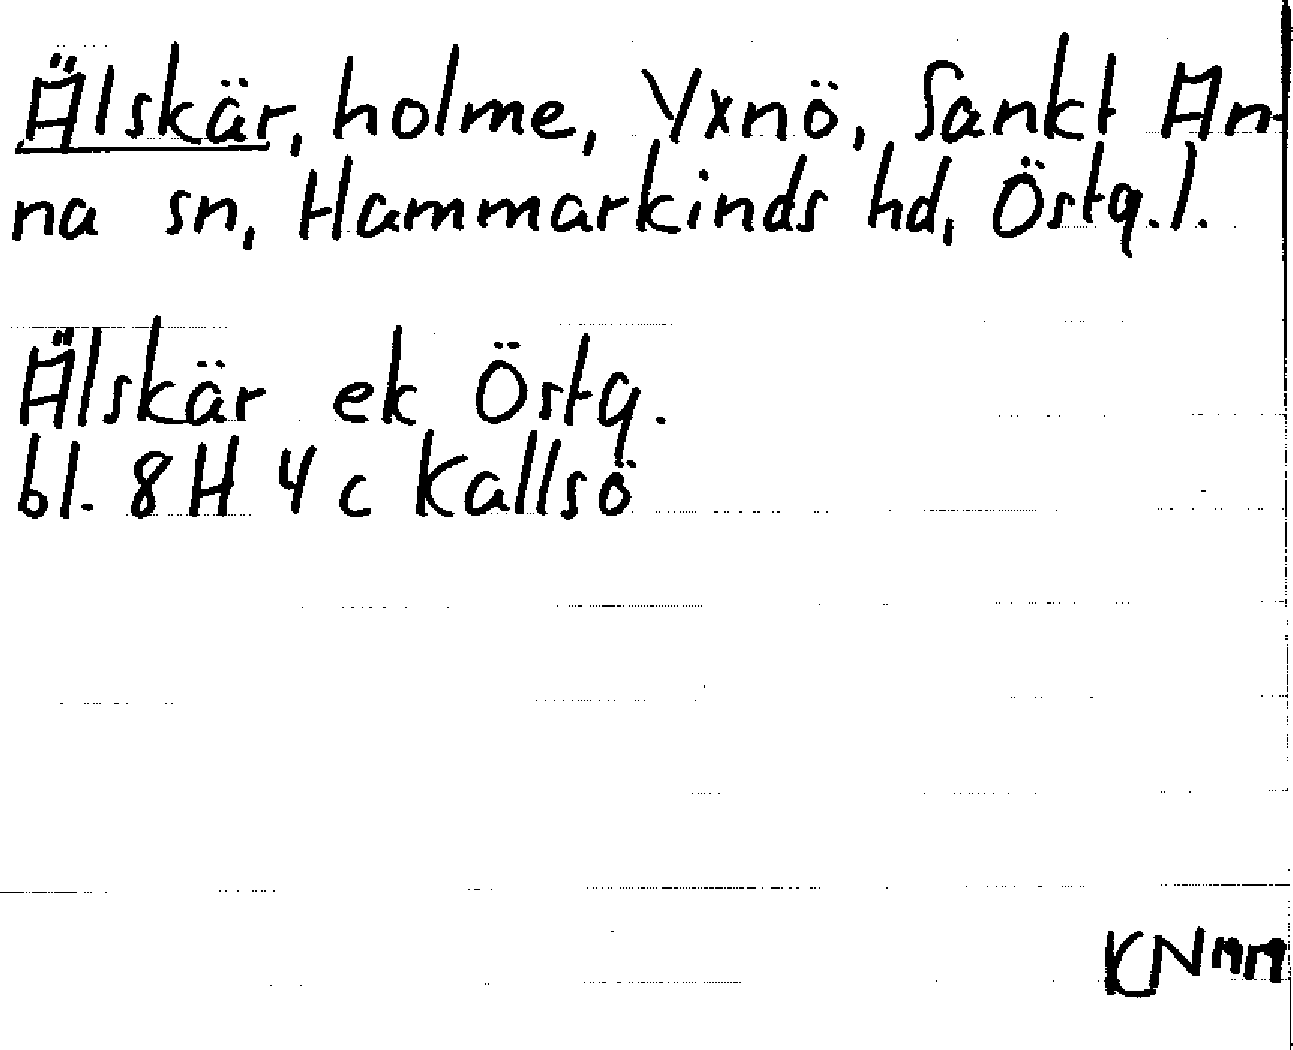 Älskär, holme, Yxnö, Sankt An-
na sn, Hammarkinds hd, Östg.l.
Älskär ek Östg.
bl. 8H 4c Kallsö
KNmn